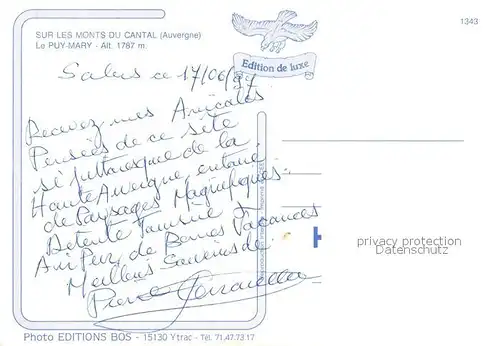 SUR LES MONTS DU CANTAL (Auvergne)
Le PUY-MARY - Alt. 1787 m
1343
Edition de luxe
Salers ce 17/06/97
Recevez mes Amicales
Pensées de ce site
si pittoresque de la
Haute Auvergne, entouré
de Paysages Magnifiques.
Détente Tourisme
Air Pur, de Bonnes Vacances
Meilleurs Souvenirs de
Pierre
privacy protection
Datenschutz
Photo EDITIONS BOS - 15130 Ytrac - Tél. 71.47.73.17